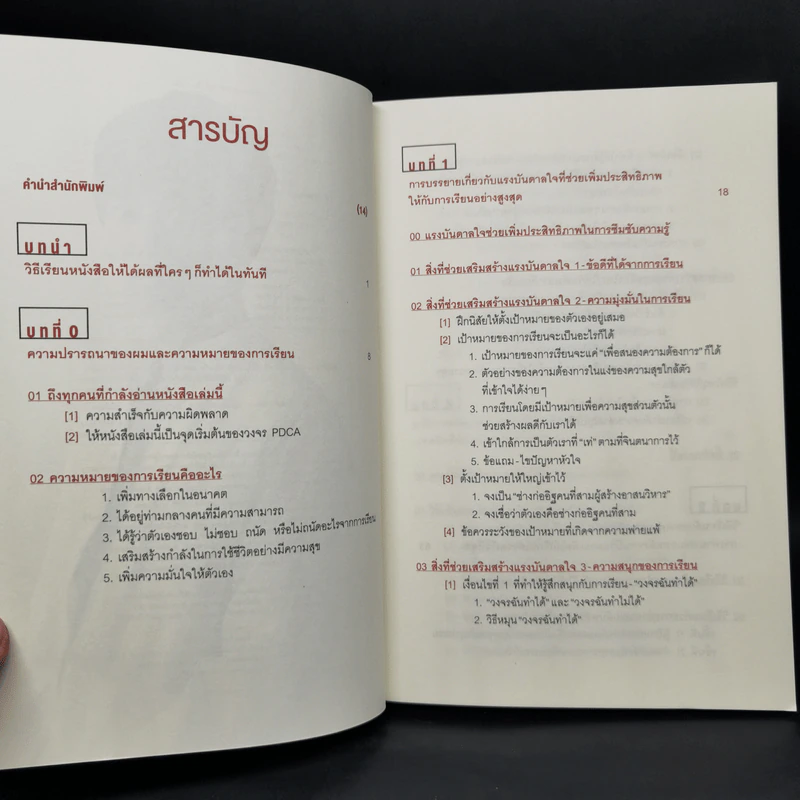 สารบัญ
คำนำสำนักพิมพ์
(14)
บทนำ
วิธีเรียนหนังสือให้ได้ผลที่ใครๆ ก็ทำได้ในทันที
1
บทที่ 0
ความปรารถนาของผมและความหมายของการเรียน
8
01 ถึงทุกคนที่กำลังอ่านหนังสือเล่มนี้
[1] ความสำเร็จกับความผิดพลาด
[2] ให้หนังสือเล่มนี้เป็นจุดเริ่มต้นของวงจร PDCA
02 ความหมายของการเรียนคืออะไร
1. เพิ่มทางเลือกในอนาคต
2. ได้อยู่ท่ามกลางคนที่มีความสามารถ
3. ได้รู้ว่าตัวเองชอบ ไม่ชอบ ถนัด หรือไม่ถนัดอะไรจากการเรียน
4. เสริมสร้างกำลังในการใช้ชีวิตอย่างมีความสุข
5. เพิ่มความมั่นใจให้ตัวเอง
บทที่ 1
การบรรยายเกี่ยวกับแรงบันดาลใจที่ช่วยเพิ่มประสิทธิภาพ
ให้กับการเรียนอย่างสูงสุด
18
00 แรงบันดาลใจช่วยเพิ่มประสิทธิภาพในการซึมซับความรู้
01 สิ่งที่ช่วยเสริมสร้างแรงบันดาลใจ 1-ข้อดีที่ได้จากการเรียน
02 สิ่งที่ช่วยเสริมสร้างแรงบันดาลใจ 2-ความมุ่งมั่นในการเรียน
[1] ฝึกนิสัยให้ตั้งเป้าหมายของตัวเองอยู่เสมอ
[2] เป้าหมายของการเรียนจะเป็นอะไรก็ได้
1. เป้าหมายของการเรียนจะแค่ "เพื่อสนองความต้องการ" ก็ได้
2. ตัวอย่างของความต้องการในแง่ของความสุขใกล้ตัว
ที่เข้าใจได้ง่ายๆ
3. การเรียนโดยมีเป้าหมายเพื่อความสุขส่วนตัวนั้น
ช่วยสร้างผลดีกับเราได้
4. เข้าใกล้การเป็นตัวเราที่ "เท่" ตามที่จินตนาการไว้
5. ข้อแถม-ไขปัญหาหัวใจ
[3] ตั้งเป้าหมายให้ใหญ่เข้าไว้
1. จงเป็น "ช่างก่ออิฐคนที่สามผู้สร้างอาสนวิหาร"
2. จงเชื่อว่าตัวเองคือช่างก่ออิฐคนที่สาม
[4] ข้อควรระวังของเป้าหมายที่เกิดจากความพ่ายแพ้
03 สิ่งที่ช่วยเสริมสร้างแรงบันดาลใจ 3-ความสนุกของการเรียน
[1] เงื่อนไขที่ 1 ที่ทำให้รู้สึกสนุกกับการเรียน-"วงจรฉันทำได้"
1. "วงจรฉันทำได้" และ "วงจรฉันทำไม่ได้"
2. วิธีหมุน "วงจรฉันทำได้"